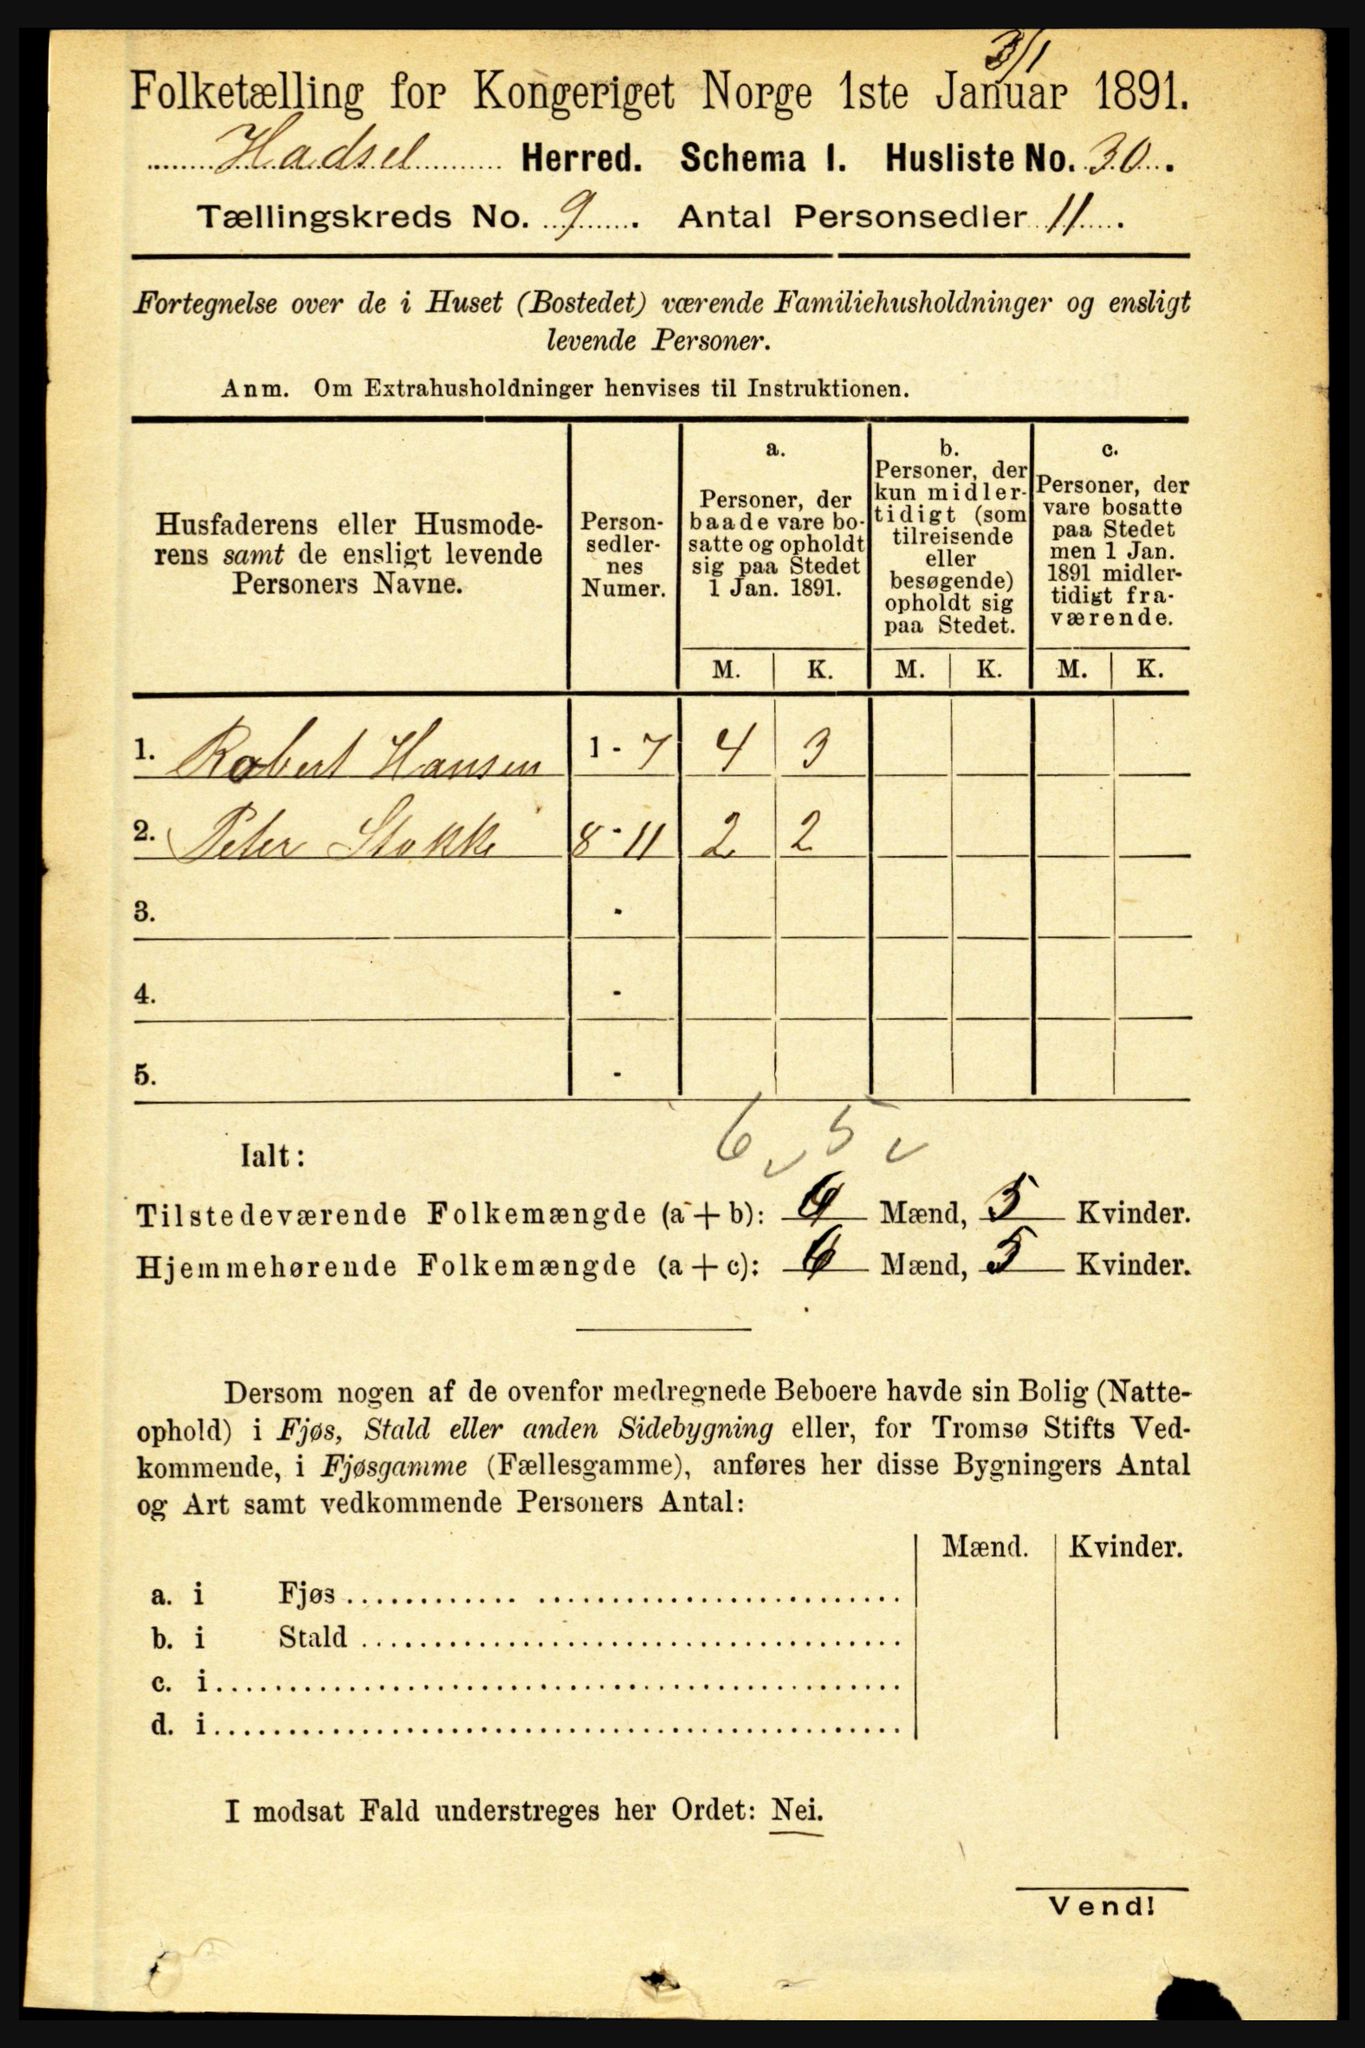 3/1
Folketælling for Kongeriget Norge 1ste Januar 1891.
Hadsel Herred. Schema I. Husliste No. 30.
Tællingskreds No. 9. Antal Personsedler 11.
Fortegnelse over de i Huset (Bostedet) værende Familiehusholdninger og ensligt
levende Personer.
Anm. Om Extrahusholdninger henvises til Instruktionen.
Husfaderens eller Husmode-
rens samt de ensligt levende
Personers Navne.
Person-
sedler-
nes
Numer.
a.
Personer, der
baade vare bo-
satte og opholdt
sig paa Stedet
1 Jan. 1891.
b.
Personer, der
kun midler-
tidigt (som
tilreisende
eller
besøgende)
opholdt sig
paa Stedet.
c.
Personer, der
vare bosatte
paa Stedet
men 1 Jan.
1891 midler-
tidigt fra-
værende.
M. K. M. K. M. K.
1. Robert Hansen 1 - 7 4 3
2. Peter Stokke 8 - 11 2 2
3. -
4. -
5. -
6 5
Ialt:
Tilstedeværende Folkemængde (a + b): 6 Mænd, 5 Kvinder.
Hjemmehørende Folkemængde (a + c): 6 Mænd, 5 Kvinder.
Dersom nogen af de ovenfor medregnede Beboere havde sin Bolig (Natte-
ophold) i Fjøs, Stald eller anden Sidebygning eller, for Tromsø Stifts Ved-
kommende, i Fjøsgamme (Fællesgamme), anføres her disse Bygningers Antal
og Art samt vedkommende Personers Antal:
Mænd. Kvinder.
a. i Fjøs
b. i Stald
c. i
d. i
I modsat Fald understreges her Ordet: Nei.
Vend!